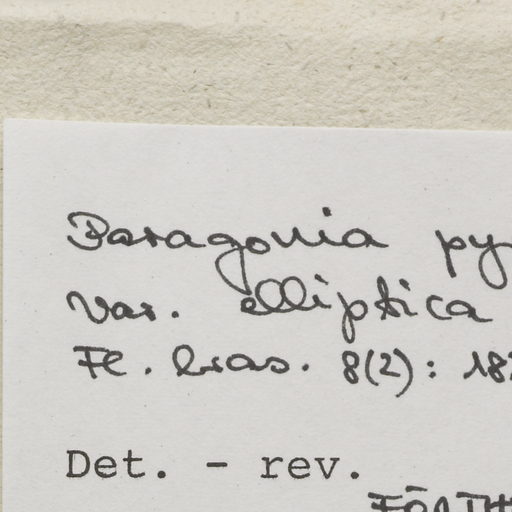 Paragonia py
var. elliptica
Fl. bras. 8(2): 18
Det. - rev.